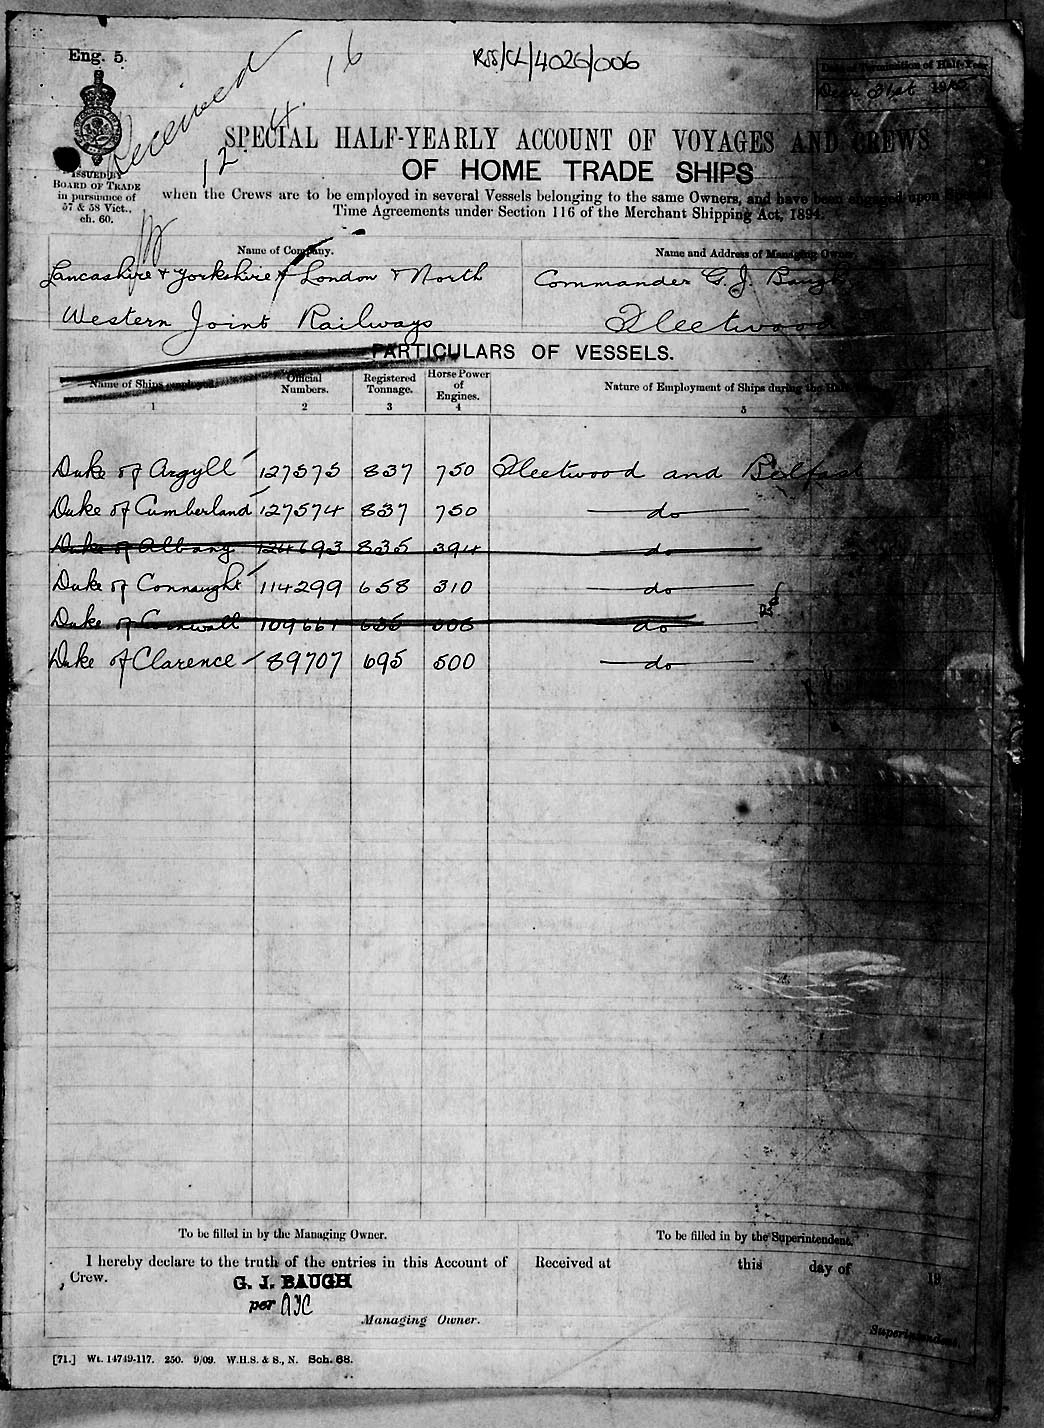 Eng. 5.
RSS/CL/4026/006
Received
12. 4. 16
Date of Termination of Half-Year
Dec 31st 19
ISSUED BY
BOARD OF TRADE
in pursuance of
57 & 58 Vict.,
ch. 60.
SPECIAL HALF-YEARLY ACCOUNT OF VOYAGES AND CREWS
OF HOME TRADE SHIPS
when the Crews are to be employed in several Vessels belonging to the same Owners, and have been engaged upon
Time Agreements under Section 116 of the Merchant Shipping Act, 1894.
Name of Company.
Name and Address of Managing Owner
Lancashire & Yorkshire & London & North
Western Joint Railways
Commander G. J. Baugh
Fleetwood
PARTICULARS OF VESSELS.
Name of Ships employed. Official Numbers. Registered Tonnage. Horse Power of Engines. Nature of Employment of Ships during the Half
1 2 3 4 5
Duke of Argyll 127575 837 750 Fleetwood and Belfast
Duke of Cumberland 127574 837 750 do
Duke of Albany 124693 835 394 do
Duke of Connaught 114299 658 310 do
Duke of Cornwall 109661 do
Duke of Clarence 89707 695 500 do
To be filled in by the Managing Owner.
To be filled in by the Superintendent.
I hereby declare to the truth of the entries in this Account of
Crew.
G. J. BAUGH
per AJC
Managing Owner.
Received at this day of 19
Superintendent.
[71.] Wt. 14749-117. 250. 9/09. W.H.S. & S., N. Sch. 68.